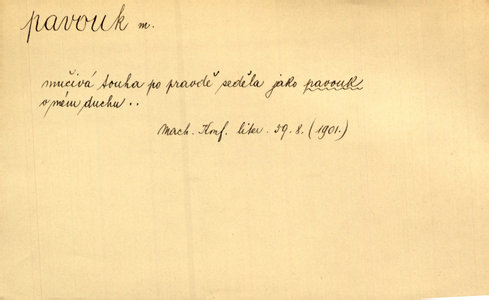 pavouk m.
mučivá touha po pravdě seděla jako pavouk
v mém duchu..
Mach. Konf. liter. 39.8. (1901.)